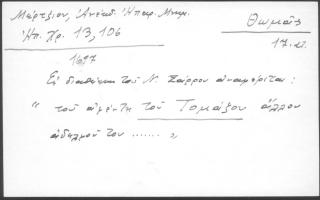 Μέρτζιον, Ἀνέκδ. Ἠπειρ. Μνημ.
Ἠπ. Χρ. 13, 106
Θωμᾶς
17. αἰ.
1627
Εἰς διαθήκην τοῦ Ν. Σάρρου ἀναφέρεται:
"τοῦ ἀφέντη τοῦ Τομάζου ἄλλου
ἀδελφοῦ του ......."